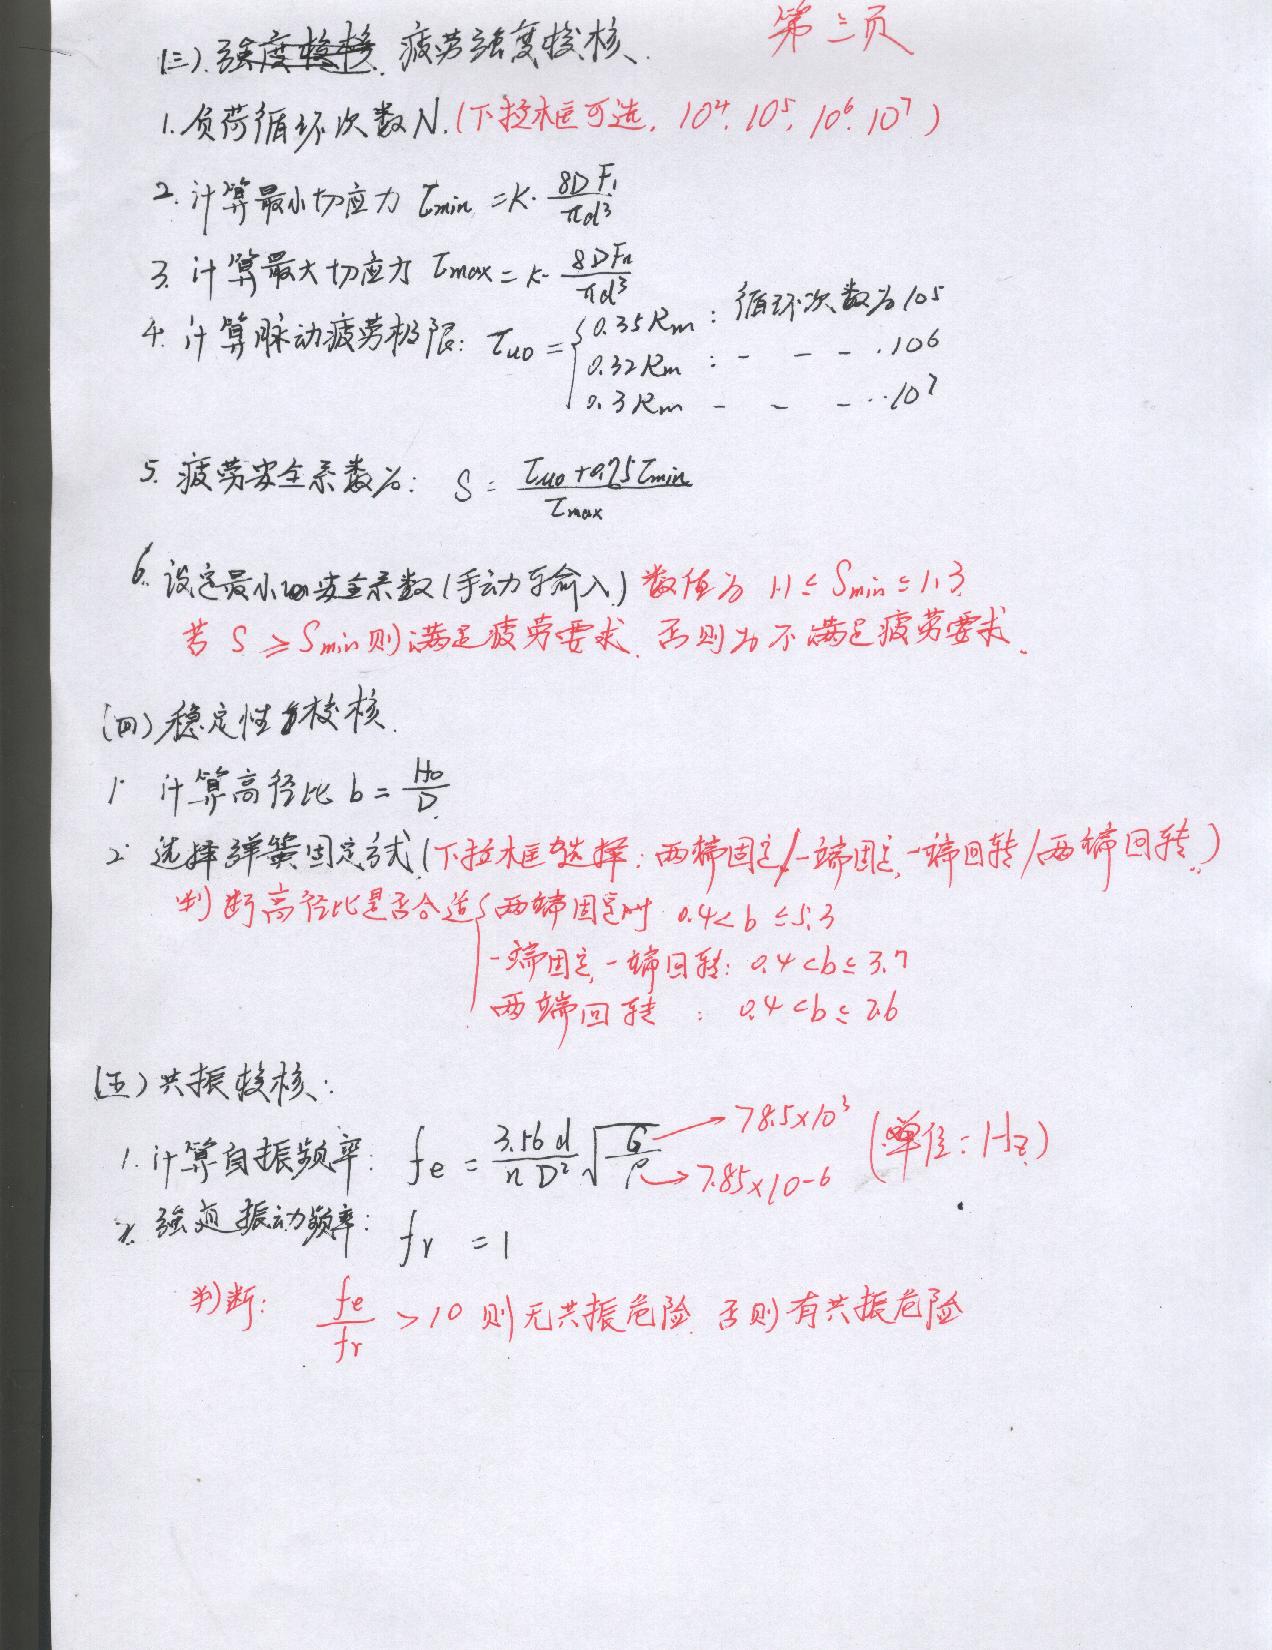 第三页
(三).强度校核.疲劳强度校核.
1.负荷循环次数N.(下拉框可选, 10⁴. 10⁵, 10⁶. 10⁷)
2.计算最小切应力 τmin = K· 8DF₁/πd³
3.计算最大切应力 τmax = K· 8DFn/πd³
4.计算脉动疲劳极限: τu0 = { 0.35Rm : 循环次数为10⁵
0.32Rm : - - - .10⁶
0.3Rm - - - ..10⁷
5.疲劳安全系数为: S = (τu0+0.75τmin)/τmax
6.设定最小安全系数(手动输入) 数值为 1.1 ≤ Smin ≤ 1.3
若 S ≥ Smin 则满足疲劳要求. 否则为不满足疲劳要求.
(四)稳定性校核.
1. 计算高径比 b = H₀/D
2. 选择弹簧固定方式(下拉框选择: 两端固定/一端固定,一端回转/两端回转.)
判断高径比是否合适{ 两端固定时 0.4<b≤5.3
一端固定,一端回转: 0.4<b≤3.7
两端回转 : 0.4<b≤2.6
(五)共振校核:
1.计算自振频率: fe = 3.56d/nD² √G/ρ →78.5×10³ →7.85×10-6 (单位:Hz)
2.强迫振动频率: fr = 1
判断: fe/fr >10 则无共振危险. 否则有共振危险